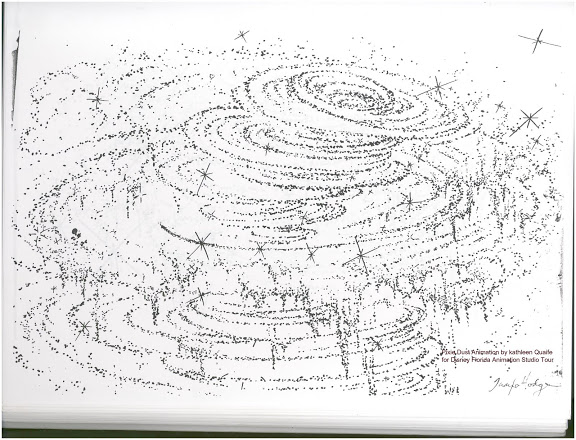 Pixie Dust Animation by kathleen Quaife
for Disney Florida Animation Studio Tour